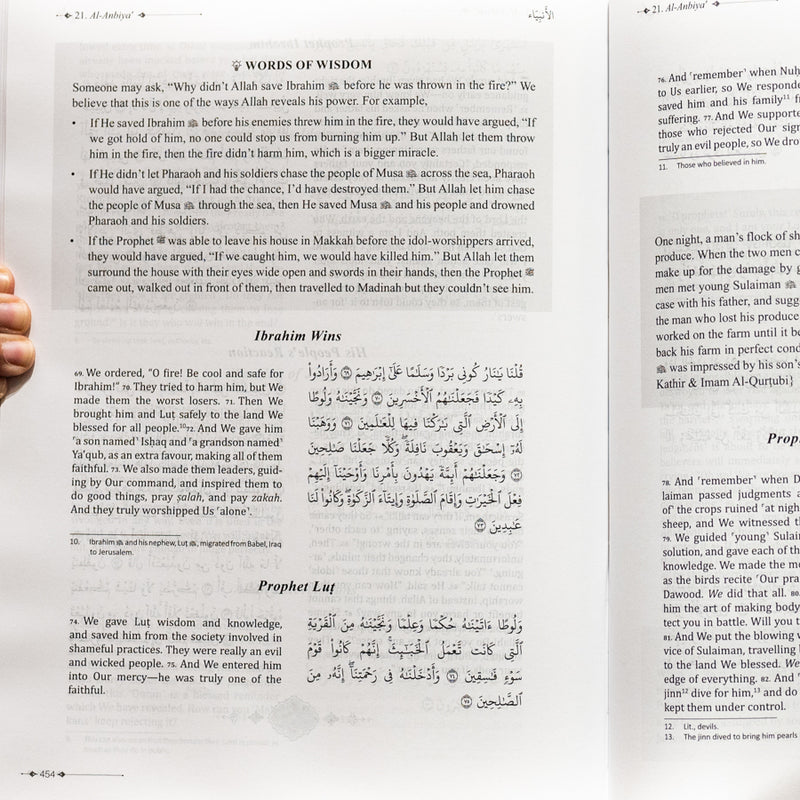 21. Al-Anbiya'
الأنبياء
WORDS OF WISDOM
Someone may ask, "Why didn't Allah save Ibrahim ﷺ before he was thrown in the fire?" We
believe that this is one of the ways Allah reveals his power. For example,
• If He saved Ibrahim ﷺ before his enemies threw him in the fire, they would have argued, "If
we got hold of him, no one could stop us from burning him up." But Allah let them throw
him in the fire, then the fire didn't harm him, which is a bigger miracle.
• If He didn't let Pharaoh and his soldiers chase the people of Musa ﷺ across the sea, Pharaoh
would have argued, "If I had the chance, I'd have destroyed them." But Allah let him chase
the people of Musa ﷺ through the sea, then He saved Musa ﷺ and his people and drowned
Pharaoh and his soldiers.
• If the Prophet ﷺ was able to leave his house in Makkah before the idol-worshippers arrived,
they would have argued, "If we caught him, we would have killed him." But Allah let them
surround the house with their eyes wide open and swords in their hands, then the Prophet ﷺ
came out, walked out in front of them, then travelled to Madinah but they couldn't see him.
Ibrahim Wins
69. We ordered, "O fire! Be cool and safe for
Ibrahim!" 70. They tried to harm him, but We
made them the worst losers. 71. Then We
brought him and Luṭ safely to the land We
blessed for all people.¹⁰ 72. And We gave him
˹a son named˺ Isḥaq and ˹a grandson named˺
Ya'qub, as an extra favour, making all of them
faithful. 73. We also made them leaders, guid-
ing by Our command, and inspired them to
do good things, pray ṣalah, and pay zakah.
And they truly worshipped Us ˹alone˺.
قُلْنَا يَٰنَارُ كُونِى بَرْدًا وَسَلَٰمًا عَلَىٰٓ إِبْرَٰهِيمَ ٦٩ وَأَرَادُوا۟
بِهِۦ كَيْدًا فَجَعَلْنَٰهُمُ ٱلْأَخْسَرِينَ ٧٠ وَنَجَّيْنَٰهُ وَلُوطًا
إِلَى ٱلْأَرْضِ ٱلَّتِى بَٰرَكْنَا فِيهَا لِلْعَٰلَمِينَ ٧١ وَوَهَبْنَا
لَهُۥٓ إِسْحَٰقَ وَيَعْقُوبَ نَافِلَةً ۖ وَكُلًّا جَعَلْنَا صَٰلِحِينَ
٧٢ وَجَعَلْنَٰهُمْ أَئِمَّةً يَهْدُونَ بِأَمْرِنَا وَأَوْحَيْنَآ إِلَيْهِمْ
فِعْلَ ٱلْخَيْرَٰتِ وَإِقَامَ ٱلصَّلَوٰةِ وَإِيتَآءَ ٱلزَّكَوٰةِ ۖ وَكَانُوا۟ لَنَا
عَٰبِدِينَ ٧٣
10. Ibrahim ﷺ and his nephew, Luṭ ﷺ, migrated from Babel, Iraq
to Jerusalem.
Prophet Luṭ
74. We gave Luṭ wisdom and knowledge,
and saved him from the society involved in
shameful practices. They were really an evil
and wicked people. 75. And We entered him
into Our mercy—he was truly one of the
faithful.
وَلُوطًا ءَاتَيْنَٰهُ حُكْمًا وَعِلْمًا وَنَجَّيْنَٰهُ مِنَ ٱلْقَرْيَةِ
ٱلَّتِى كَانَت تَّعْمَلُ ٱلْخَبَٰٓئِثَ ۗ إِنَّهُمْ كَانُوا۟ قَوْمَ
سَوْءٍ فَٰسِقِينَ ٧٤ وَأَدْخَلْنَٰهُ فِى رَحْمَتِنَآ ۖ إِنَّهُۥ مِنَ
ٱلصَّٰلِحِينَ ٧٥
454
21. Al-Anbiya'
76. And ˹remember˺ when Nuḥ
to Us earlier, so We responde
saved him and his family¹¹ f
suffering. 77. And We supporte
those who rejected Our sig
truly an evil people, so We dro
11. Those who believed in him.
One night, a man's flock of sh
produce. When the two men c
make up for the damage by g
men met young Sulaiman ﷺ
case with his father, and sugg
the man who lost his produce
worked on the farm until it b
back his farm in perfect cond
ﷺ was impressed by his son's
Kathir & Imam Al-Qurṭubi}
Prop
78. And ˹remember˺ when D
laiman passed judgments a
of the crops ruined ˹at nigh
sheep, and We witnessed th
79. We guided ˹young˺ Sulai
solution, and gave each of th
knowledge. We made the mo
as the birds recite ˹Our pra
Dawood. We did that all. 80.
him the art of making body
tect you in battle. Will you t
81. And We put the blowing w
vice of Sulaiman, travelling
to the land We blessed. We
edge of everything. 82. And ˹
jinn¹² dive for him,¹³ and do
kept them under control.
12. Lit., devils.
13. The jinn dived to bring him pearls